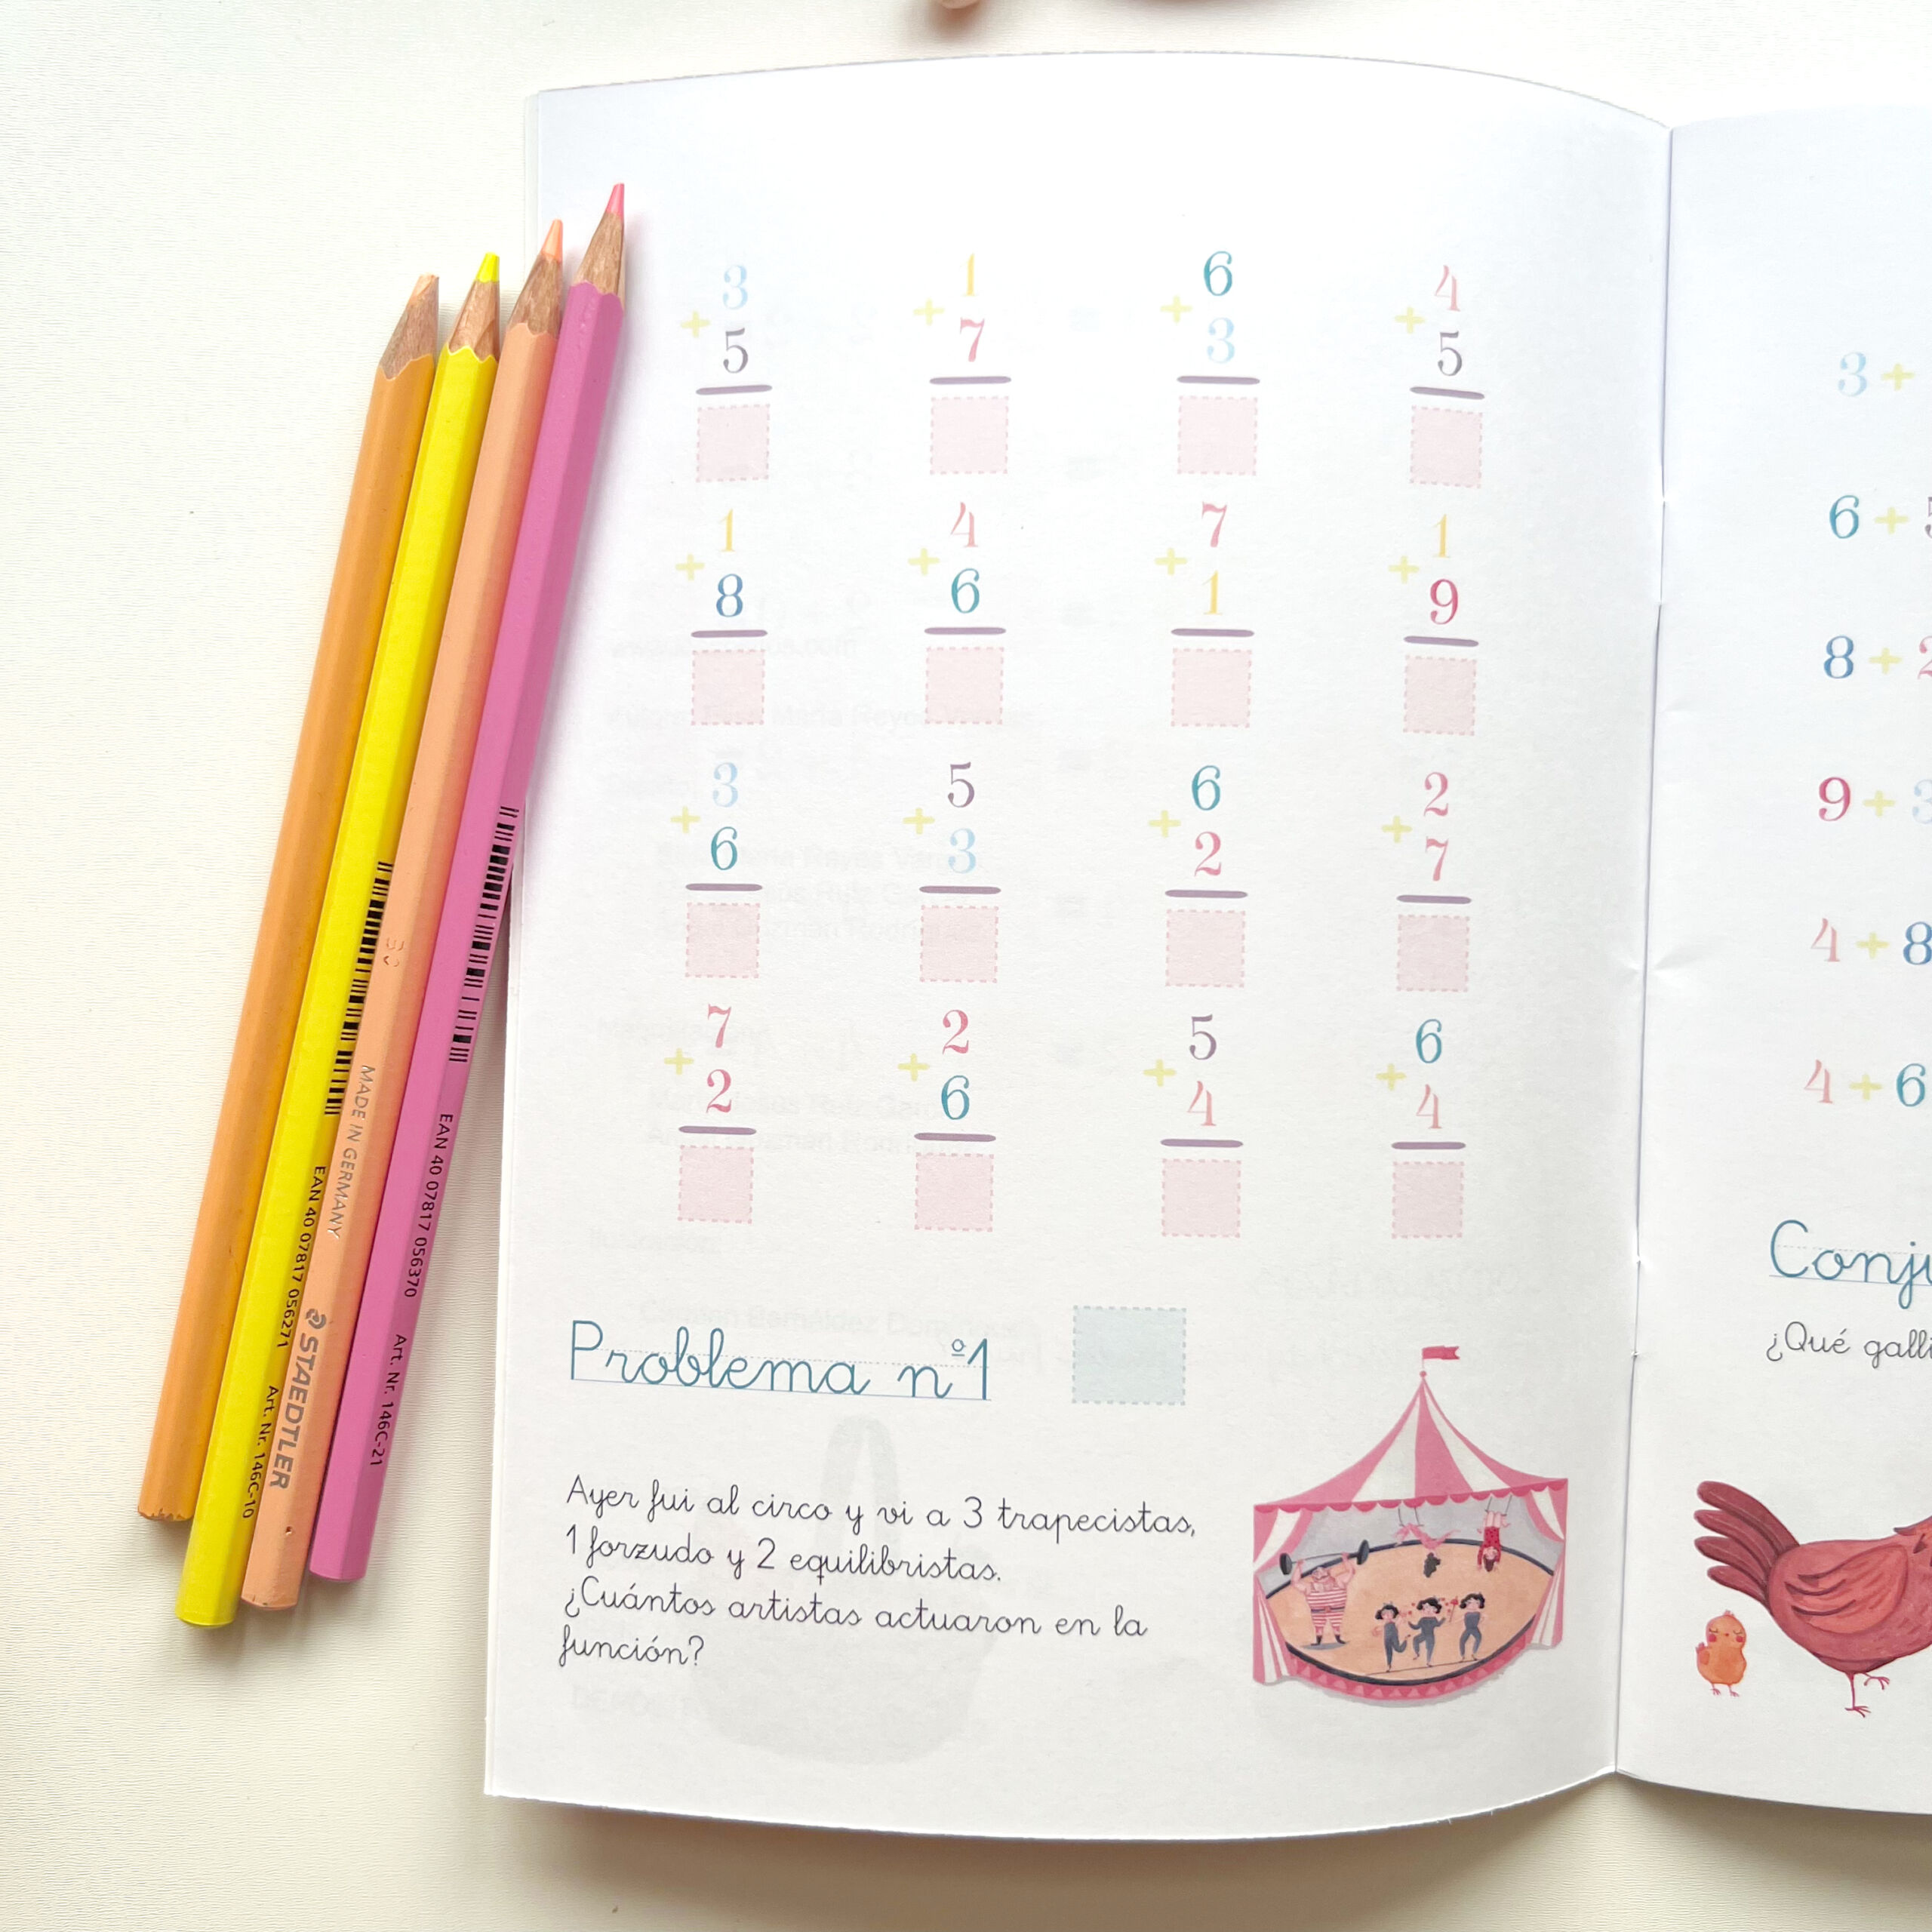 3 1 6 4
+ + + +
5 7 3 5
1 4 7 1
+ + + +
8 6 1 9
3 5 6 2
+ + + +
6 3 2 7
7 2 5 6
+ + + +
2 6 4 4
Problema nº1
Ayer fui al circo y vi a 3 trapecistas,
1 forzudo y 2 equilibristas.
¿Cuántos artistas actuaron en la
función?
3 +
6 +
8 + 2
9 + 3
4 + 8
4 + 6
¿Qué
EAN 40 07817 056271 Art. Nr. 146C-10
MADE IN GERMANY STAEDTLER
EAN 40 07817 056370 Art. Nr. 146C-21